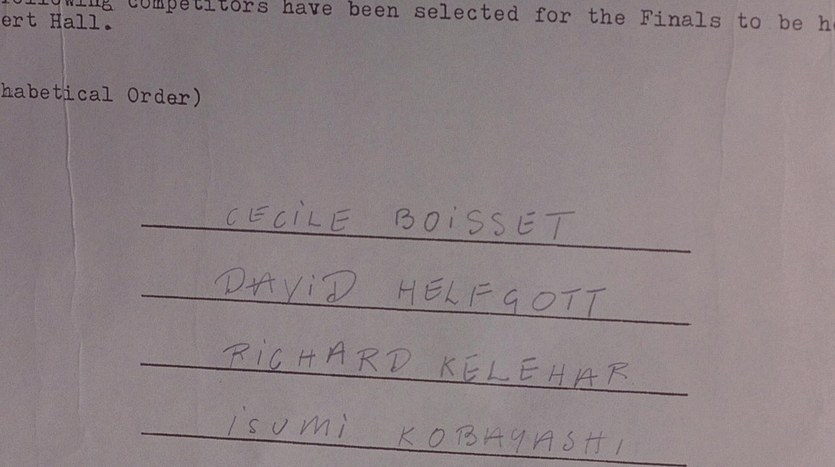 ollowing competitors have been selected for the Finals to be h
ert Hall.
habetical Order)
CECiLE BOiSSET
DAViD HELFGOTT
RiCHARD KELEHAR
iSUMi KOBAYASHI